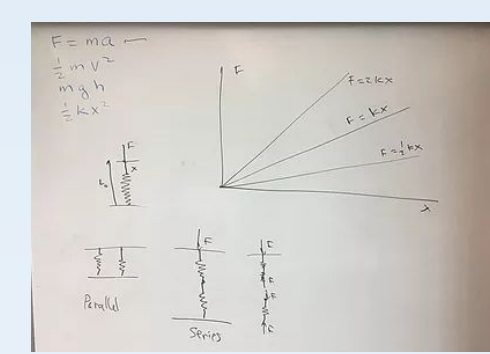 F = ma
½mv²
mgh
½kx²
F
F=2kx
F = kx
F=½kx
x
F
x
F
F
F
F
F
Parallel
Series